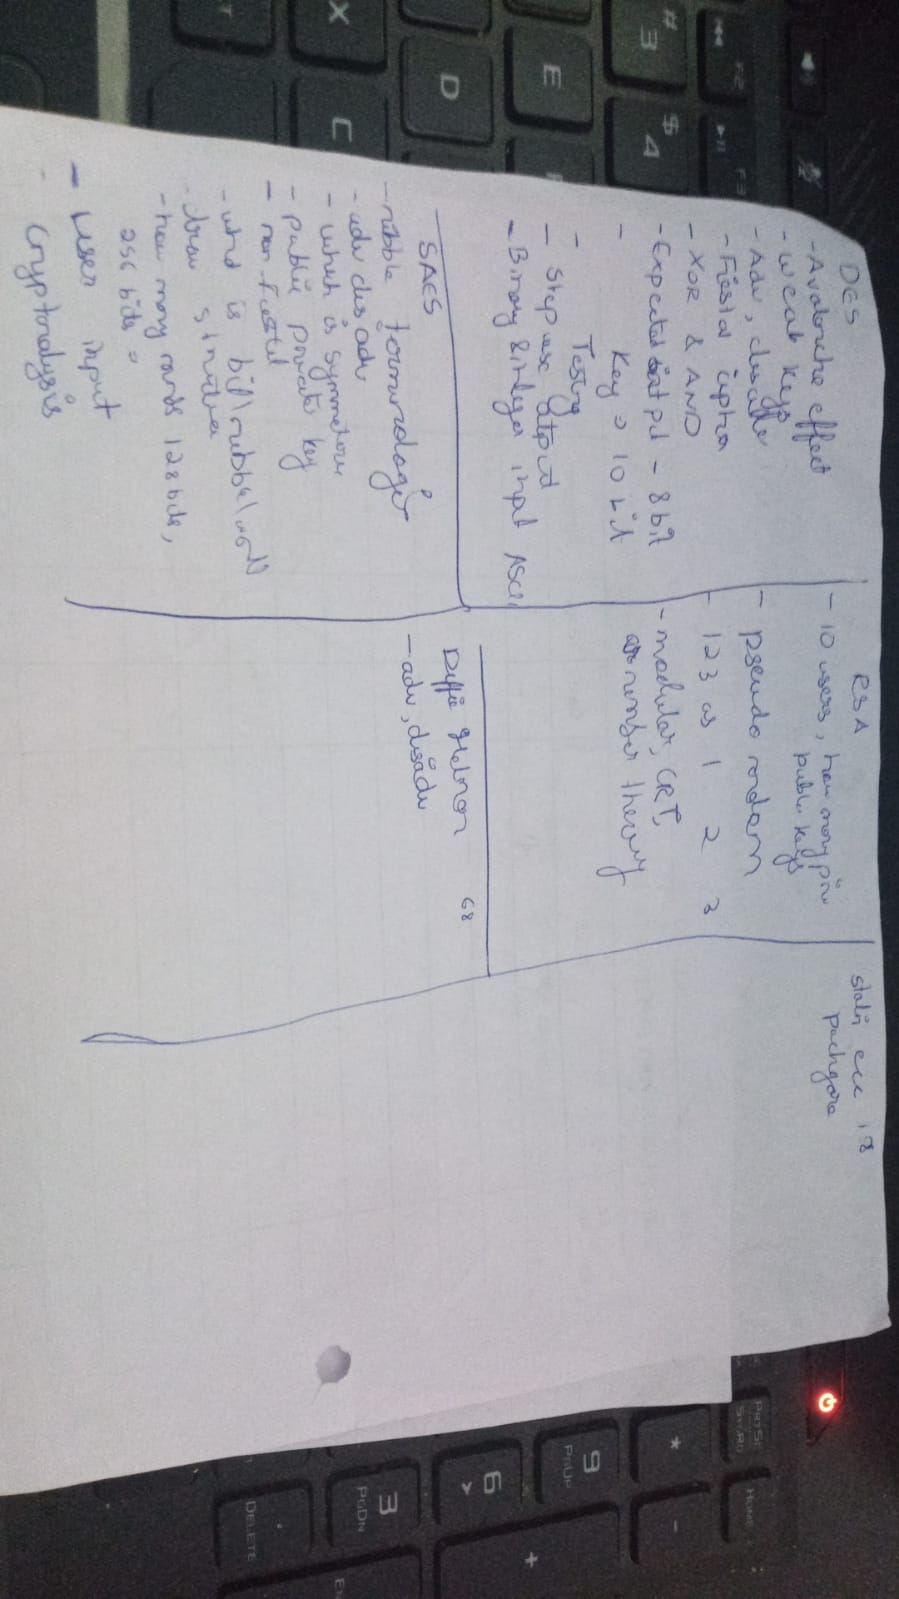 DES
- Avalanche effect
- weak keys
- Adv, disadv
- Fiestal cipher
- XOR & AND
- Expected output - 8 bit
- Key = 10 bit
- Testing
- Step wise output
- Binary & integer input ASCII
SAES
- nibble terminologie
- adv disadv
- which is symmetric
- public private key
- non Fiestel
- what is bit/nibble/word
- draw structure
- how many rounds 128 bits,
256 bits =
- User input
- Cryptanalysis
RSA
- 10 users, how many priv
public keys
- pseudo random
- 123 as 1 2 3
- modular, CRT,
number theory
Diffie Helman 68
- adv, disadv
ecc
F2
F3
#
3
$
4
E
D
X
C
T
PRTSC
SYSRQ
HOME
*
-
9
PGUP
+
6
3
PGDN
.
DELETE